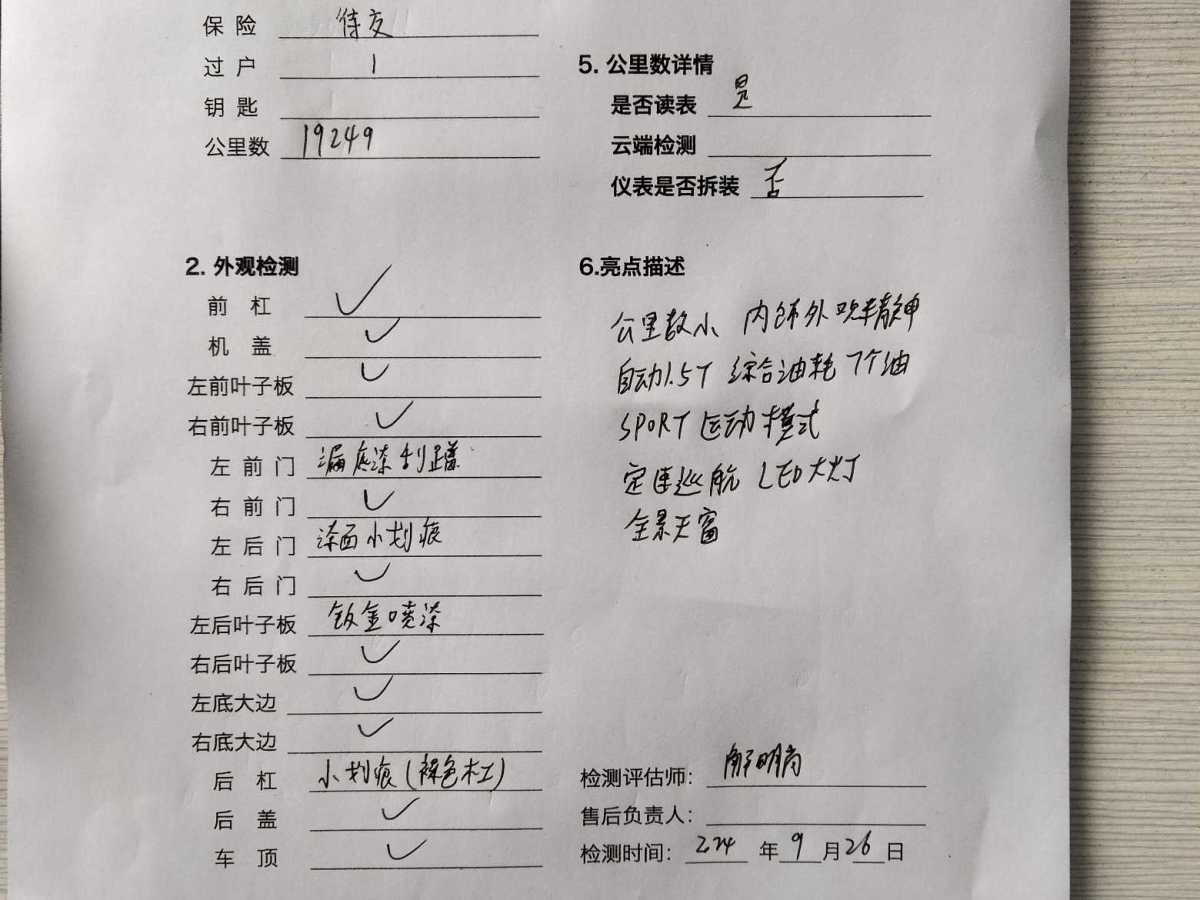 保险 待交
过户 1
钥匙
公里数 19249
2. 外观检测
前杠 ✓
机盖 ✓
左前叶子板 ✓
右前叶子板 ✓
左前门 漏底漆刮蹭
右前门 ✓
左后门 漆面小划痕
右后门 ✓
左后叶子板 钣金喷漆
右后叶子板 ✓
左底大边 ✓
右底大边 ✓
后杠 小划痕(裸色杠)
后盖 ✓
车顶 ✓
5. 公里数详情
是否读表 是
云端检测
仪表是否拆装 否
6.亮点描述
公里数小 内饰外观精神
自动1.5T 综合油耗7个油
SPORT 运动模式
定速巡航 LED大灯
全景天窗
检测评估师:
售后负责人:
检测时间: 2024 年 9 月 26 日